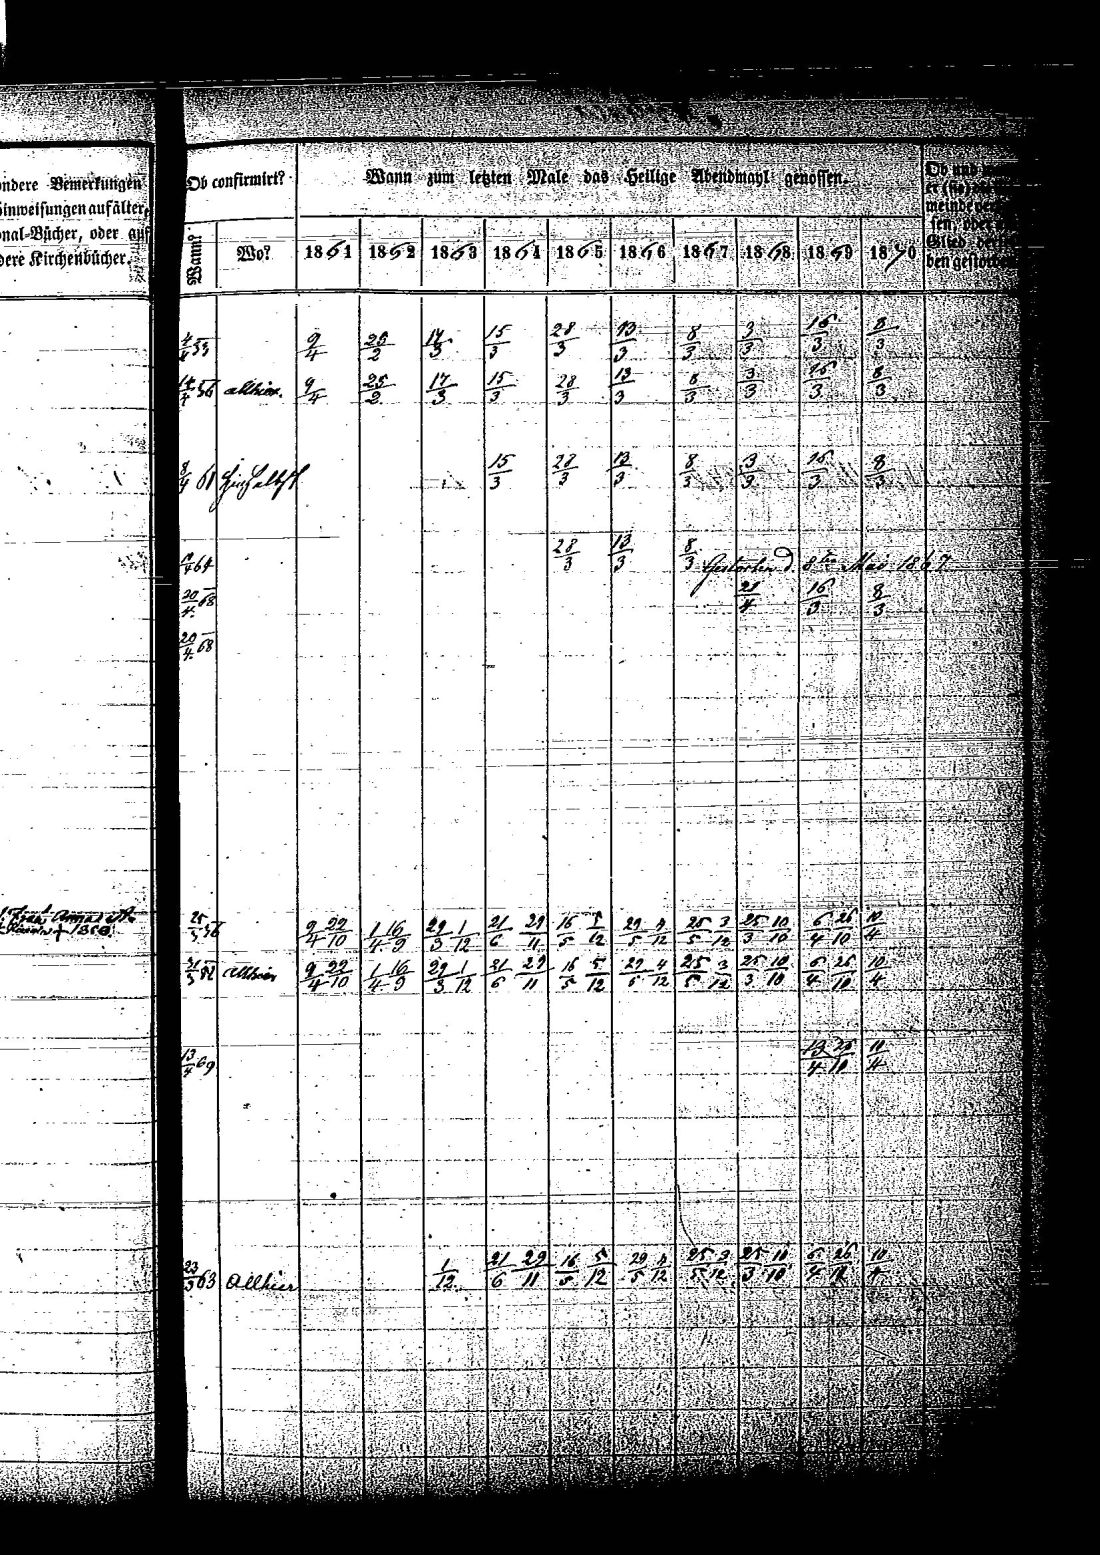 ndere Bemerkungen
Hinweisungen auf älter
nal-Bücher, oder auf
dere Kirchenbücher.
Ob confirmirt?
Wann?
Wo?
Wann zum letzten Male das Heilige Abendmahl genossen.
1861 1862 1863 1864 1865 1866 1867 1868 1869 1870
Ob und
er (sie)
meinde
sen, oder
Glied
den gestor
9/4 25/2 17/3 15/3 28/3 13/3 8/3 3/3 16/3 8/3
14/4 56 allhier. 9/4 25/2 17/3 15/3 28/3 13/3 8/3 3/3 16/3 8/3
8/4 61 15/3 28/3 13/3 8/3 3/3 16/3 8/3
64 28/3 13/3 8/3 Gestorben d. 8ten Mai 1867
20/4 68 21/4 16/3 8/3
20/4 68
† 1858
9/4 29/10 1/4 16/9 29/3 1/12 21/6 29/11 16/5 5/12 29/5 4/12 25/5 3/12 25/3 10/10 6/4 26/10 10/4
allhier 9/4 29/10 1/4 16/9 29/3 1/12 21/6 29/11 16/5 5/12 29/5 4/12 25/5 3/12 25/3 10/10 6/4 26/10 10/4
13/4 69 13/4 26/10 10/4
23/3 63 Allhier 1/12 21/6 29/11 16/5 5/12 29/5 4/12 25/5 3/12 25/3 10/10 6/4 26/10 10/4